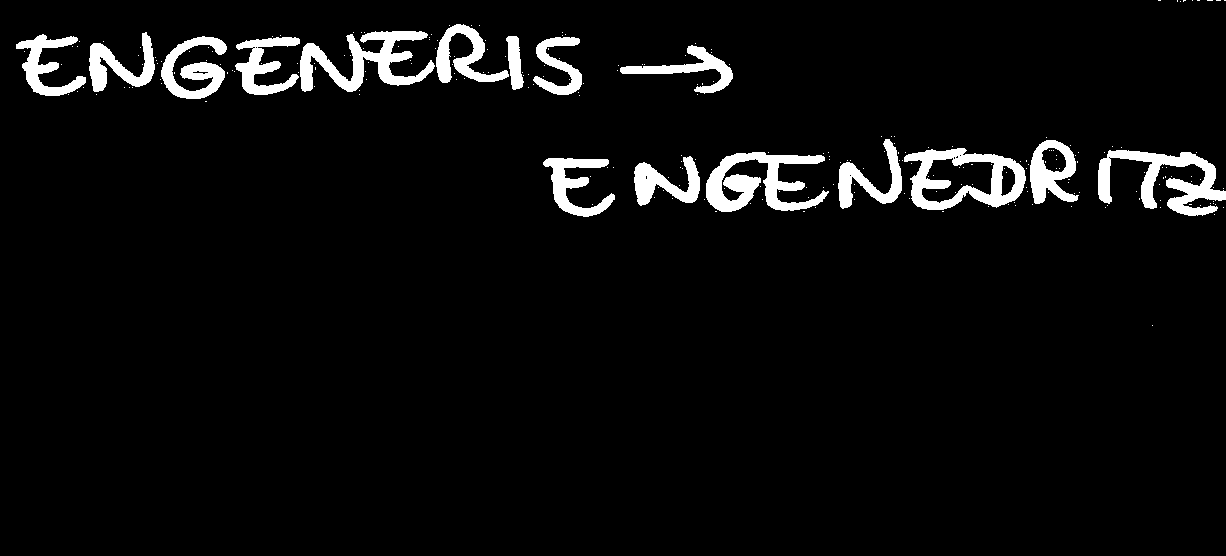 ENGENERIS →
ENGENEDRITZ